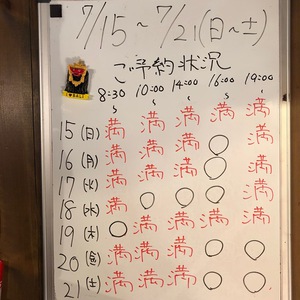 7/15~7/21(日~土)
ご予約状況
8:30 10:00 14:00 16:00 19:00
~ ~ ~ ~ ~
15(日) 満 満 満 満 満
16(月) 満 満 満 ○ 満
17(火) 満 満 満 ○ 満
18(水) 満 ○ ○ ○ 満
19(木) ○ 満 満 満 満
20(金) 満 満 満 ○ ○
21(土) 満 満 満 ○ ○